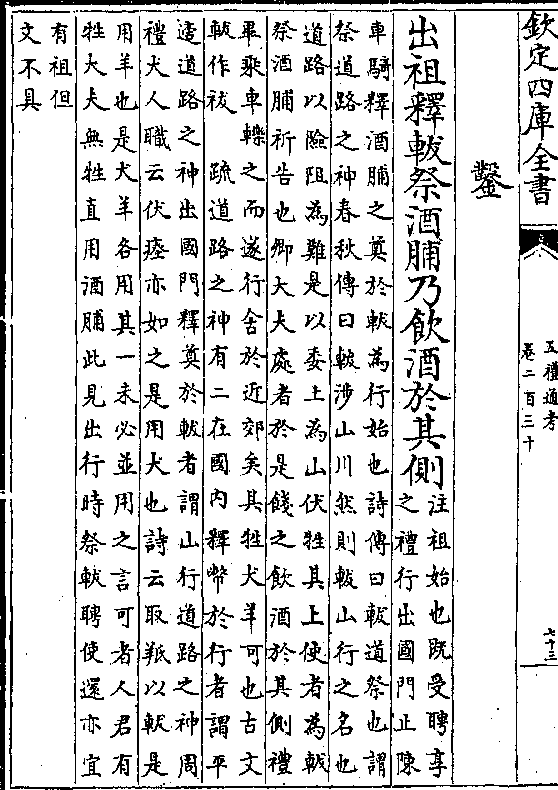 欽定四庫全書
五禮通考
卷二百三十
七十三
鑿
出祖釋軷祭酒脯乃飲酒於其側
注祖始也既受聘享
之禮行出國門止陳
車騎釋酒脯之奠於軷為行始也詩傳曰軷道祭也謂
祭道路之神春秋傳曰軷涉山川然則軷山行之名也
道路以險阻為難是以委土為山伏牲其上使者為軷
祭酒脯祈告也卿大夫處者於是餞之飲酒於其側禮
畢乘車轢之而遂行舍於近郊矣其牲犬羊可也古文
軷作祓　疏道路之神有二在國內釋幣於行者謂平
適道路之神出國門釋奠於軷者謂山行道路之神周
禮犬人職云伏瘞亦如之是用犬也詩云取羝以軷是
用羊也是犬羊各用其一未必並用之言可者人君有
牲大夫無牲直用酒脯此見出行時祭軷聘使還亦宜
有祖但
文不具